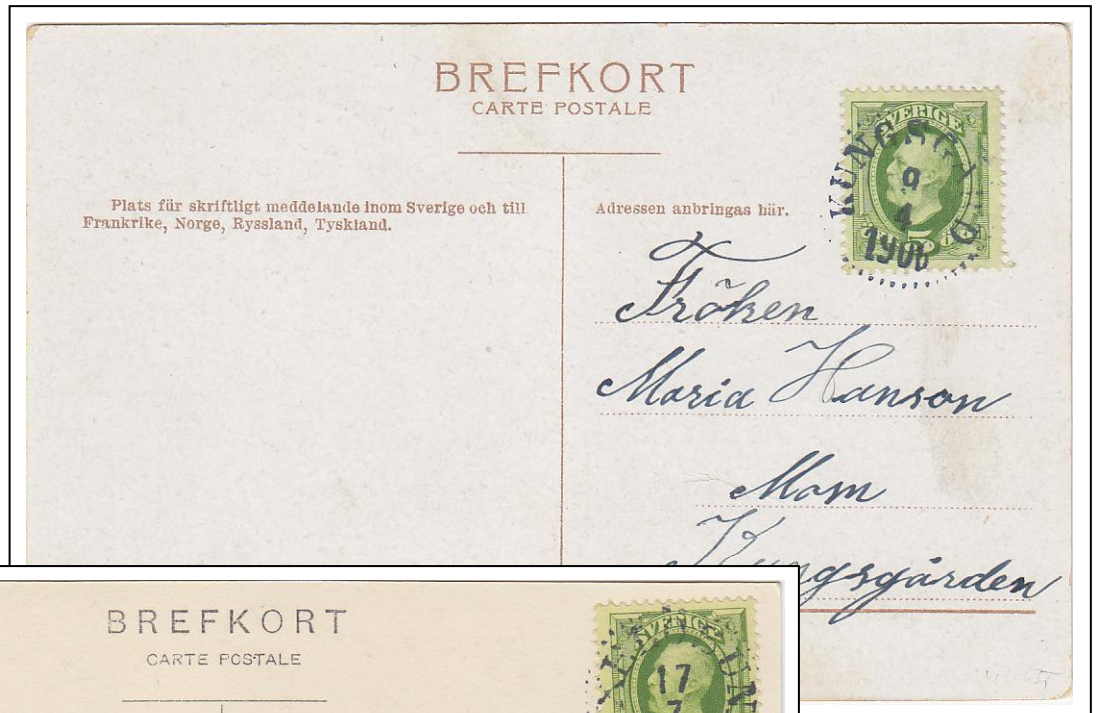 BREFKORT
CARTE POSTALE
Plats für skriftligt meddelande inom Sverige och till
Frankrike, Norge, Ryssland, Tyskland.
Adressen anbringas här.
SVERIGE
9
4
1906
5
Fröken
Maria Hanson
Mom
Kungsgården
BREFKORT
CARTE POSTALE
SVERIGE
17
7